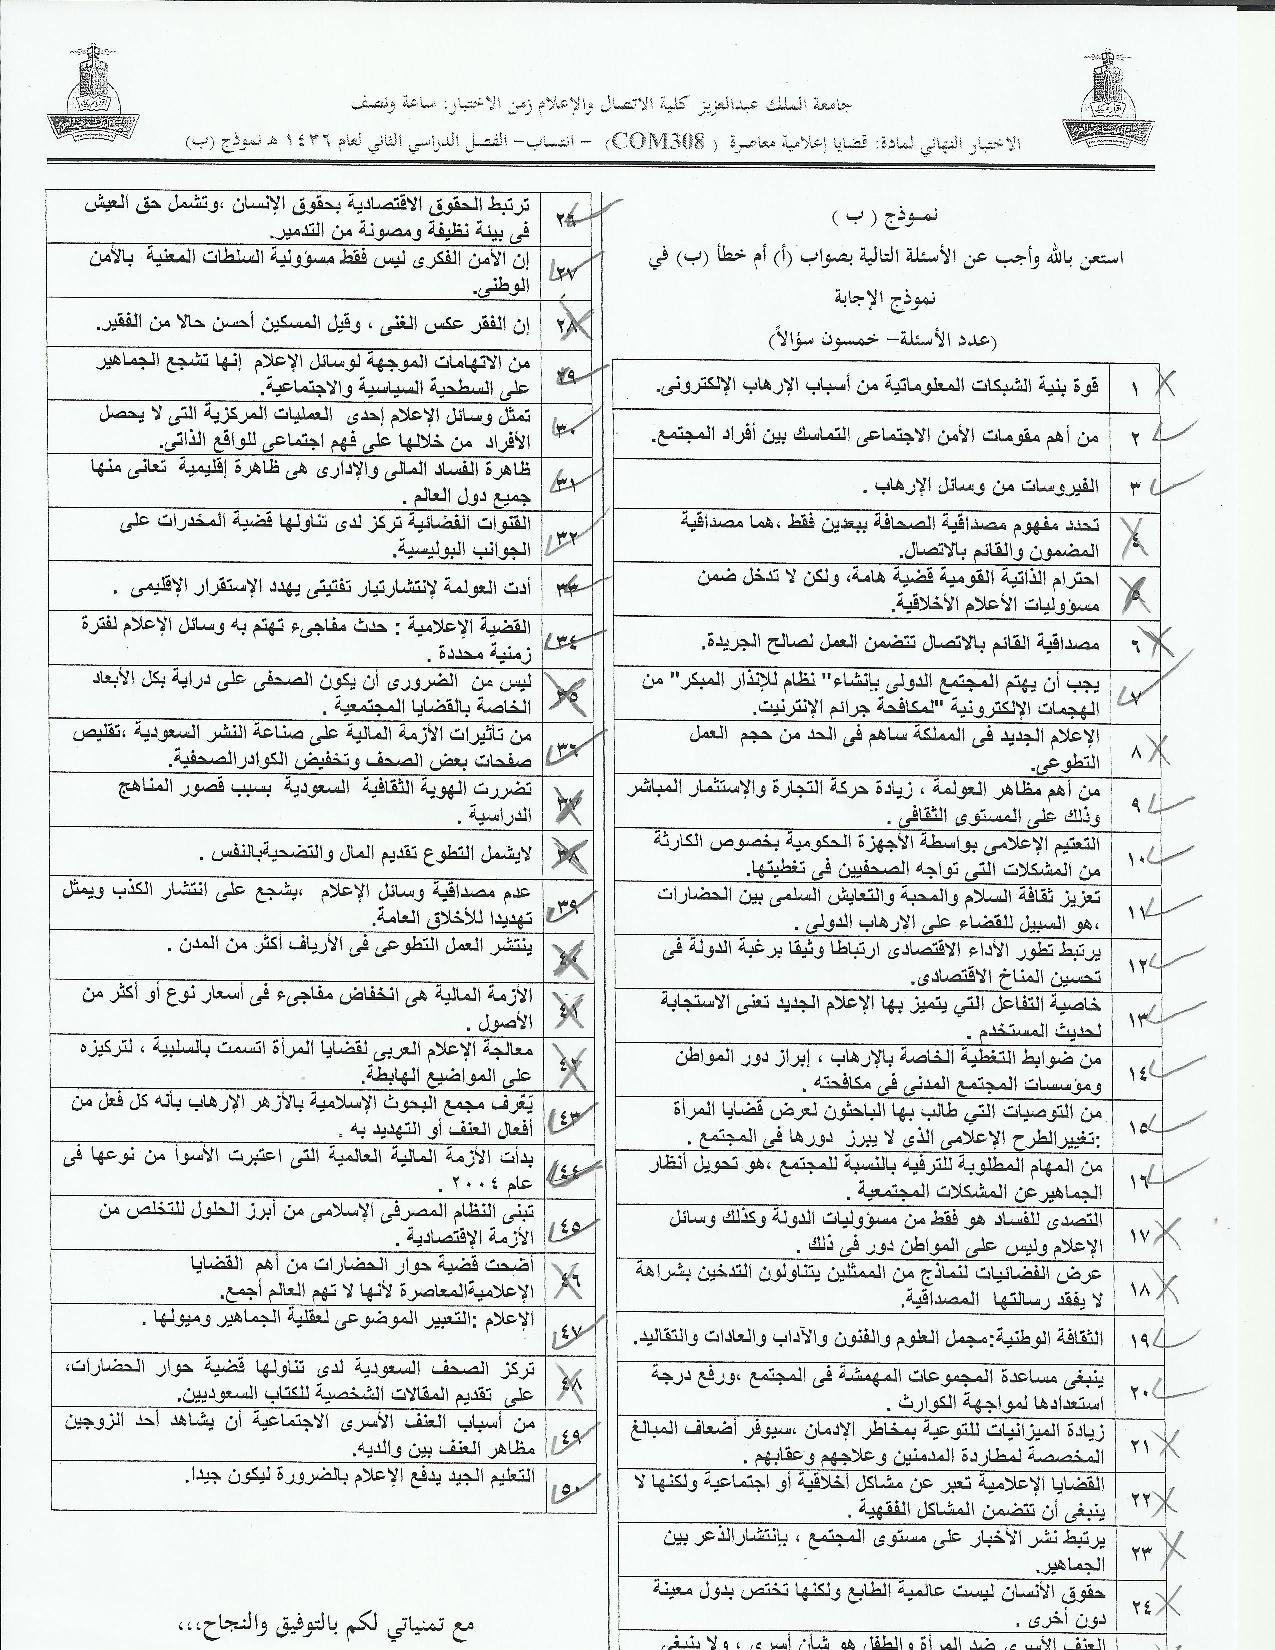 جامعة الملك عبدالعزيز كلية الاتصال والإعلام زمن الاختبار: ساعة ونصف
الاختبار النهائي لمادة: قضايا إعلامية معاصرة ( COM308) – انتساب– الفصل الدراسي الثاني لعام ١٤٣٦ هـ نموذج (ب)
نموذج ( ب )
استعن بالله وأجب عن الأسئلة التالية بصواب (أ) أم خطأ (ب) في
نموذج الإجابة
(عدد الأسئلة– خمسون سؤالاً)
١ قوة بنية الشبكات المعلوماتية من أسباب الإرهاب الإلكترونى.
٢ من أهم مقومات الأمن الاجتماعى التماسك بين أفراد المجتمع.
٣ الفيروسات من وسائل الإرهاب .
٤ تحدد مفهوم مصداقية الصحافة ببعدين فقط ،هما مصداقية
المضمون والقائم بالاتصال.
٥ احترام الذاتية القومية قضية هامة، ولكن لا تدخل ضمن
مسؤوليات الأعلام الأخلاقية.
٦ مصداقية القائم بالاتصال تتضمن العمل لصالح الجريدة.
٧ يجب أن يهتم المجتمع الدولى بإنشاء" نظام للإنذار المبكر" من
الهجمات الإلكترونية "لمكافحة جرائم الإنترنيت.
٨ الإعلام الجديد فى المملكة ساهم فى الحد من حجم العمل
التطوعى.
٩ من أهم مظاهر العولمة ، زيادة حركة التجارة والإستثمار المباشر
وذلك على المستوى الثقافى .
١٠ التعتيم الإعلامى بواسطة الأجهزة الحكومية بخصوص الكارثة
من المشكلات التى تواجه الصحفيين فى تغطيتها.
١١ تعزيز ثقافة السلام والمحبة والتعايش السلمى بين الحضارات
،هو السبيل للقضاء على الإرهاب الدولى .
١٢ يرتبط تطور الأداء الاقتصادى ارتباطا وثيقا برغبة الدولة فى
تحسين المناخ الاقتصادى.
١٣ خاصية التفاعل التي يتميز بها الإعلام الجديد تعنى الاستجابة
لحديث المستخدم .
١٤ من ضوابط التغطية الخاصة بالإرهاب ، إبراز دور المواطن
ومؤسسات المجتمع المدنى فى مكافحته .
١٥ من التوصيات التي طالب بها الباحثون لعرض قضايا المرأة
:تغييرالطرح الإعلامى الذى لا يبرز دورها فى المجتمع .
١٦ من المهام المطلوبة للترفيه بالنسبة للمجتمع ،هو تحويل أنظار
الجماهير عن المشكلات المجتمعية .
١٧ التصدى للفساد هو فقط من مسؤوليات الدولة وكذلك وسائل
الإعلام وليس على المواطن دور فى ذلك .
١٨ عرض الفضائيات لنماذج من الممثلين يتناولون التدخين بشراهة
لا يفقد رسالتها المصداقية.
١٩ الثقافة الوطنية:مجمل العلوم والفنون والآداب والعادات والتقاليد.
٢٠ ينبغى مساعدة المجموعات المهمشة فى المجتمع ،ورفع درجة
استعدادها لمواجهة الكوارث .
٢١ زيادة الميزانيات للتوعية بمخاطر الإدمان ،سيوفر أضعاف المبالغ
المخصصة لمطاردة المدمنين وعلاجهم وعقابهم .
٢٢ القضايا الإعلامية تعبر عن مشاكل أخلاقية أو اجتماعية ولكنها لا
ينبغى أن تتضمن المشاكل الفقهية .
٢٣ يرتبط نشر الأخبار على مستوى المجتمع ، بإنتشارالذعر بين
الجماهير.
٢٤ حقوق الأنسان ليست عالمية الطابع ولكنها تختص بدول معينة
دون أخرى .
العنف الأسرى ضد المرأة والطفل هو شأن أسرى ، ولا ينبغى
٢٦ ترتبط الحقوق الاقتصادية بحقوق الإنسان ،وتشمل حق العيش
فى بيئة نظيفة ومصونة من التدمير.
٢٧ إن الأمن الفكرى ليس فقط مسؤولية السلطات المعنية بالأمن
الوطنى.
٢٨ إن الفقر عكس الغنى ، وقيل المسكين أحسن حالا من الفقير.
٢٩ من الاتهامات الموجهة لوسائل الإعلام إنها تشجع الجماهير
على السطحية السياسية والاجتماعية.
٣٠ تمثل وسائل الإعلام إحدى العمليات المركزية التى لا يحصل
الأفراد من خلالها على فهم اجتماعى للواقع الذاتى.
٣١ ظاهرة الفساد المالى والإدارى هى ظاهرة إقليمية تعانى منها
جميع دول العالم .
٣٢ القنوات الفضائية تركز لدى تناولها قضية المخدرات على
الجوانب البوليسية.
٣٣ أدت العولمة لإنتشارتيار تفتيتى يهدد الإستقرار الإقليمى .
٣٤ القضية الإعلامية : حدث مفاجىء تهتم به وسائل الإعلام لفترة
زمنية محددة .
٣٥ ليس من الضرورى أن يكون الصحفى على دراية بكل الأبعاد
الخاصة بالقضايا المجتمعية .
٣٦ من تأثيرات الأزمة المالية على صناعة النشر السعودية ،تقليص
صفحات بعض الصحف وتخفيض الكوادرالصحفية.
٣٧ تضررت الهوية الثقافية السعودية بسبب قصور المناهج
الدراسية .
٣٨ لايشمل التطوع تقديم المال والتضحيةبالنفس .
٣٩ عدم مصداقية وسائل الإعلام ،يشجع على انتشار الكذب ويمثل
تهديدا للأخلاق العامة.
٤٠ ينتشر العمل التطوعى فى الأرياف أكثر من المدن .
٤١ الأزمة المالية هى انخفاض مفاجىء فى أسعار نوع أو أكثر من
الأصول .
٤٢ معالجة الإعلام العربى لقضايا المرأة اتسمت بالسلبية ، لتركيزه
على المواضيع الهابطة.
٤٣ يعرف مجمع البحوث الإسلامية بالأزهر الإرهاب بأنه كل فعل من
أفعال العنف أو التهديد به .
٤٤ بدأت الأزمة المالية العالمية التى اعتبرت الأسوأ من نوعها فى
عام ٢٠٠٤ .
٤٥ تبنى النظام المصرفى الإسلامى من أبرز الحلول للتخلص من
الأزمة الإقتصادية .
٤٦ أضحت قضية حوار الحضارات من أهم القضايا
الإعلاميةالمعاصرة لأنها لا تهم العالم أجمع.
٤٧ الإعلام :التعبير الموضوعى لعقلية الجماهير وميولها .
٤٨ تركز الصحف السعودية لدى تناولها قضية حوار الحضارات،
على تقديم المقالات الشخصية للكتاب السعوديين.
٤٩ من أسباب العنف الأسرى الاجتماعية أن يشاهد أحد الزوجين
مظاهر العنف بين والديه.
٥٠ التعليم الجيد يدفع الإعلام بالضرورة ليكون جيدا.
مع تمنياتي لكم بالتوفيق والنجاح،،،